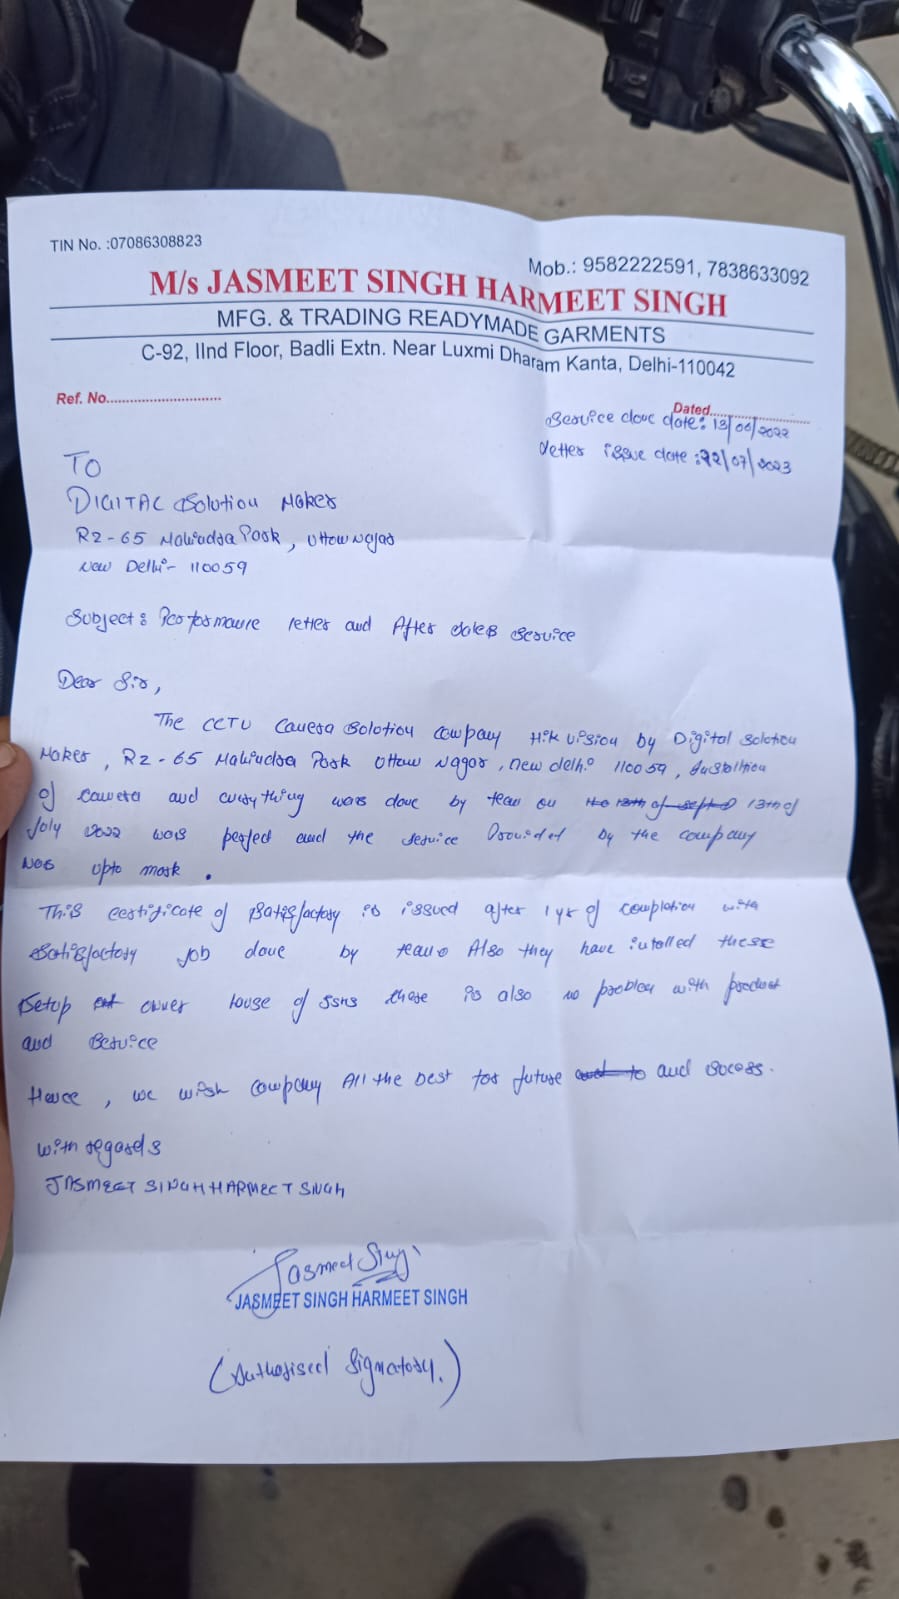 TIN No. :07086308823
Mob.: 9582222591, 7838633092
M/s JASMEET SINGH HARMEET SINGH
MFG. & TRADING READYMADE GARMENTS
C-92, IInd Floor, Badli Extn. Near Luxmi Dharam Kanta, Delhi-110042
Ref. No..............................
Dated..............................
Service done date: 13/06/2022
letter issue date: 22/07/2023
TO
DIGITAL Solution Maker
RZ-65 Mahindra Park, Uttam Nagar
New Delhi- 110059
Subject: Performance letter and After Sales Service
Dear Sir,
The CCTV Camera Solotion company Hik vision by Digital Solotion
Maker, RZ-65 Mahindra Park Uttam Nagar, new delhi 110059,
of camera and every thing was done by team on the 13th of sept 13th of
July 2022 was perfect and the service Provided by the company
was upto mark.
This certificate of Satisfactory is issued after 1yr of completion with
Satisfactory job done by team. Also they have intalled these
Setup at owner house of there is also no problem with product
and Service
Hence, we wish company All the best for future and to and Socess.
with regards
JASMEET SINGH HARMEET SINGH
Jasmeet Singh
JASMEET SINGH HARMEET SINGH
(Authorised Signatory.)